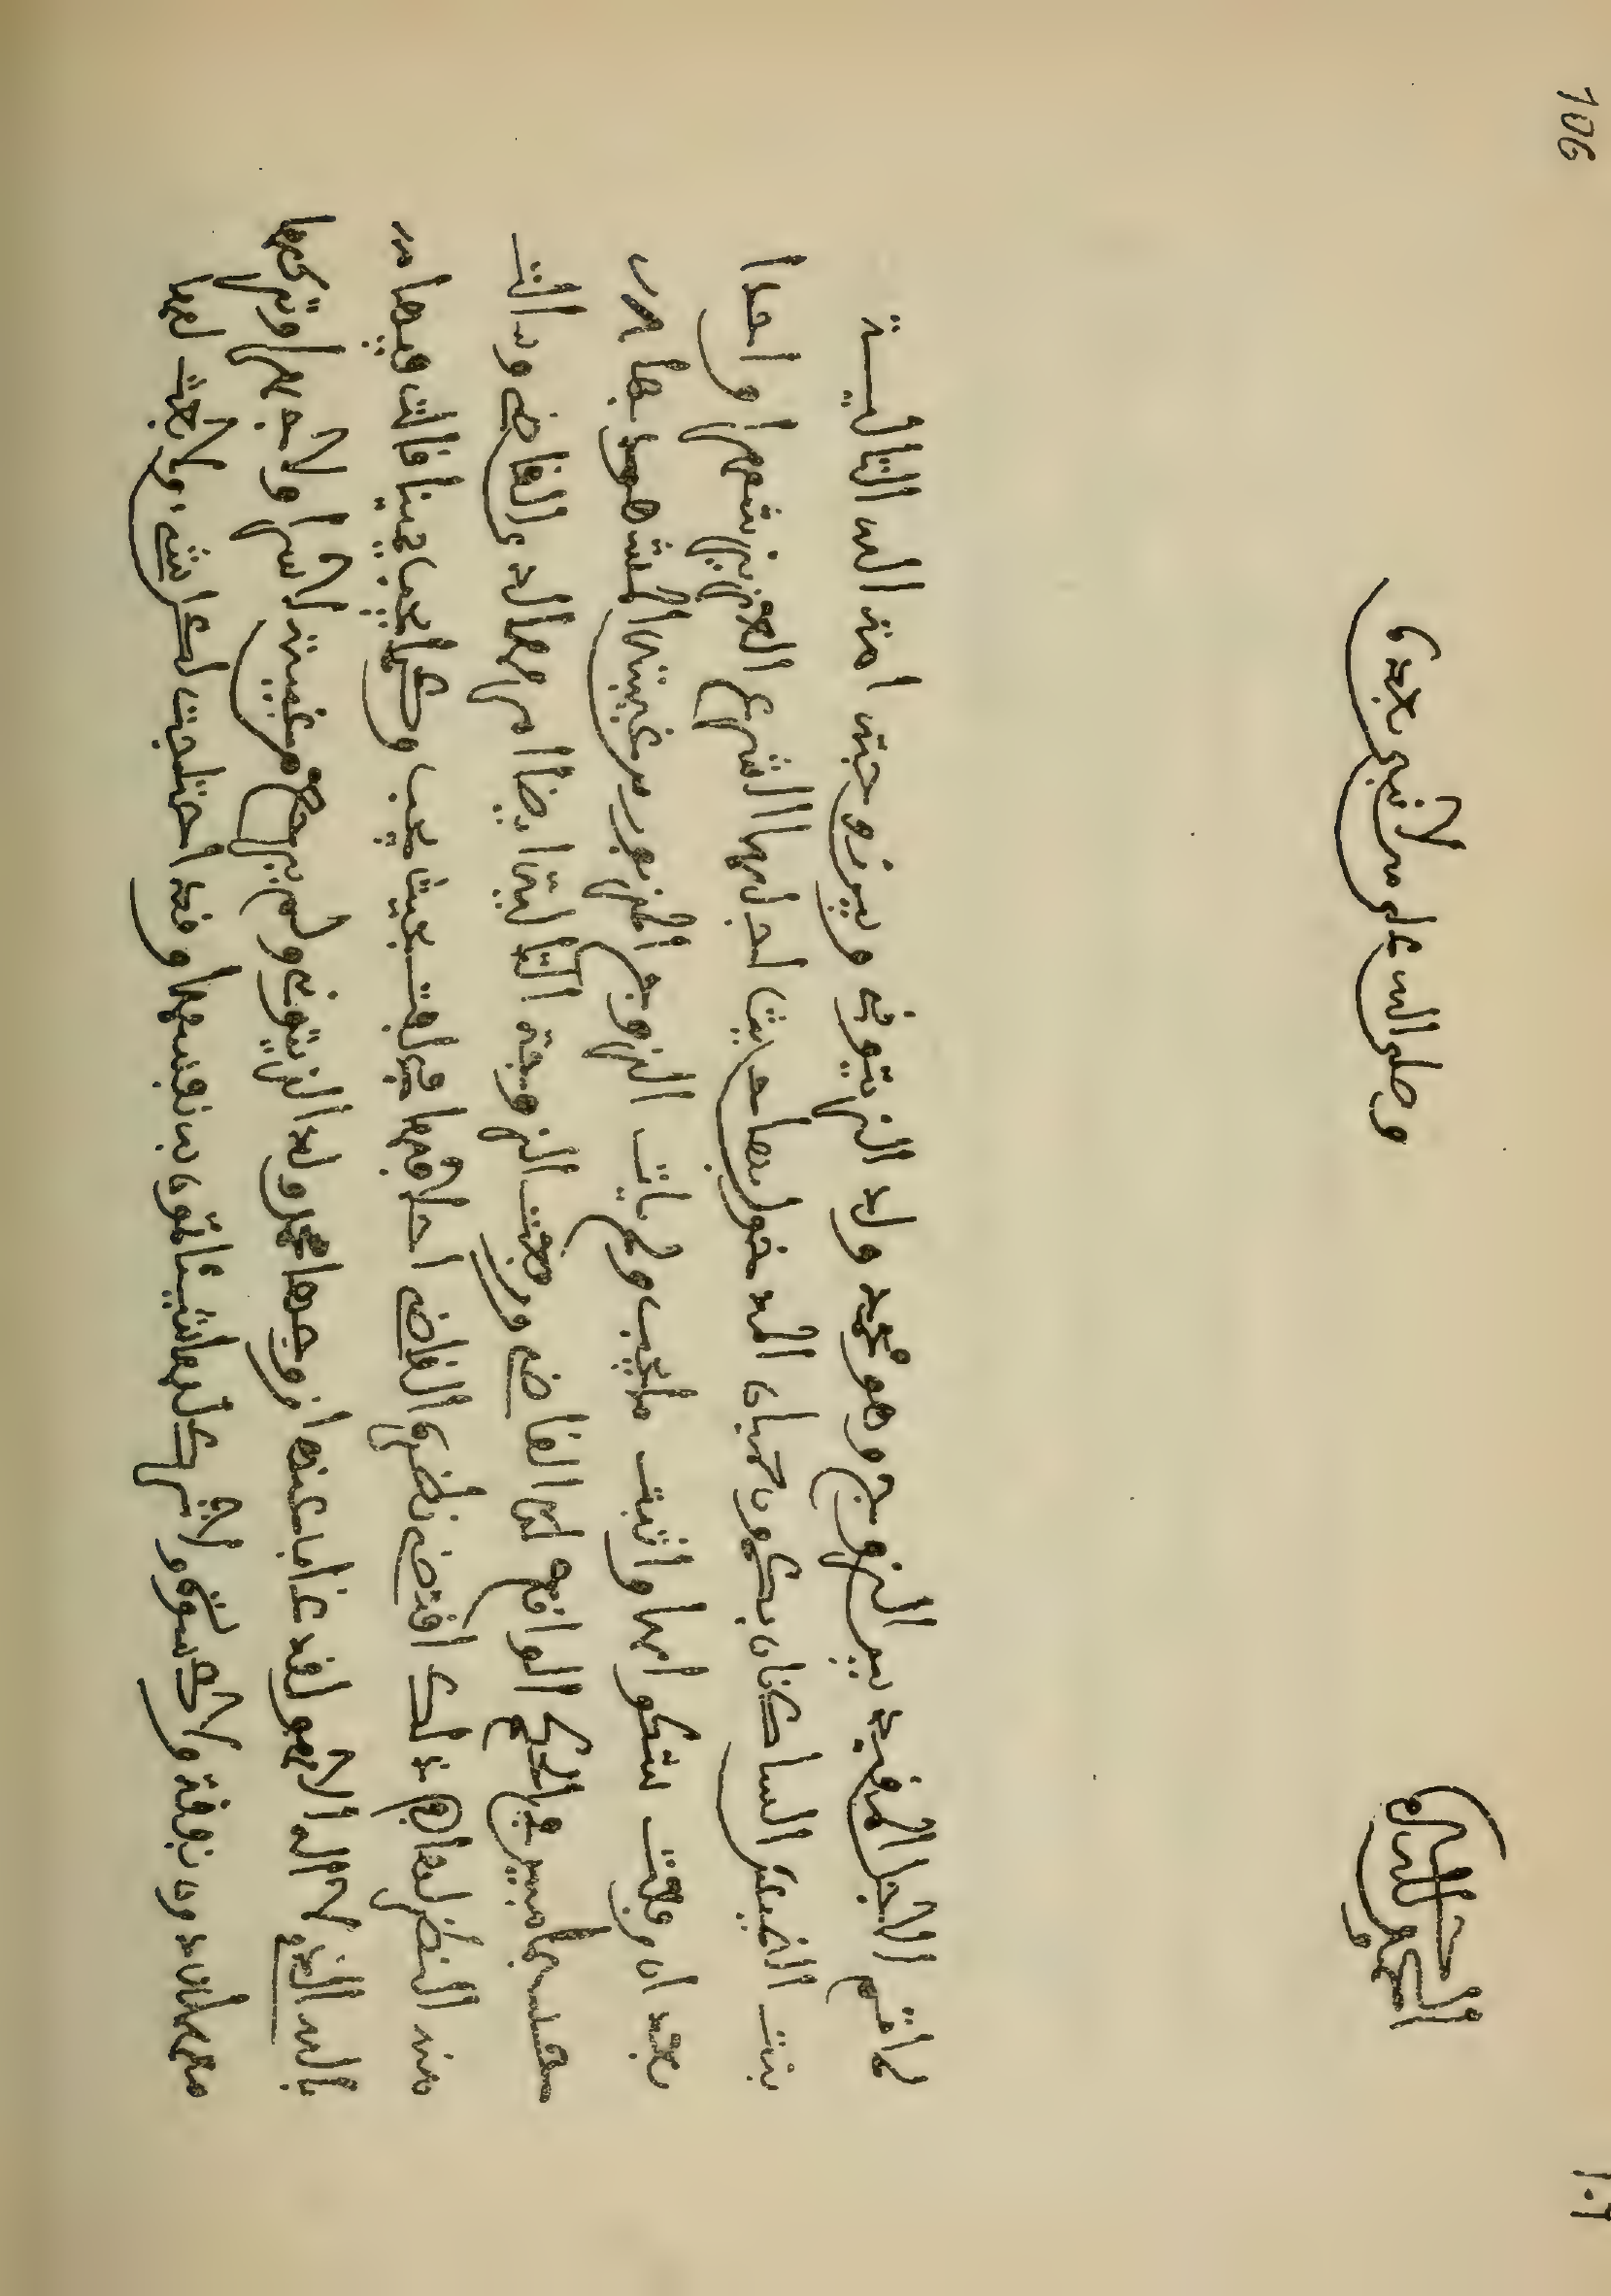 106
١٠٦
الحمد لله وحده
وصلى الله على من لا نبي بعده
لما تم الاجل المفيد بين الزوج وهو محمد ولد الزيتوني وبين زوجته امة الله التالية
بنت الضيف الساكنان بكورحميان المدخول بها حديثا اجلهما الشرع العزيز شهرا واحدا
بعد ان رفعت شكواها واثبت ما يجب ولم يات الزوج المزبور من غيبته المشهود بها
حسبما بين في الحكم الواقع لدى القاضي ورضت الزوجة التاليتا ايضا امرها له القاضي وسالت
منه النظر لها في ذلك اقتضى نظر القاضي احلافها فحلفت بحيث يجب وكما يجب يمينا قالت فيها
بالله الذي لا اله الا هو لقد غاب عنها زوجها محمد ولد الزيتوني ولم يرجع من غيبته لا سرا ولا جهرا وتركها
مهملة دون نفقة ولا كسوة ولا ترك لها شيئا تمون به نفسها وقد احتاجت لكل شيء ولا بعث لها